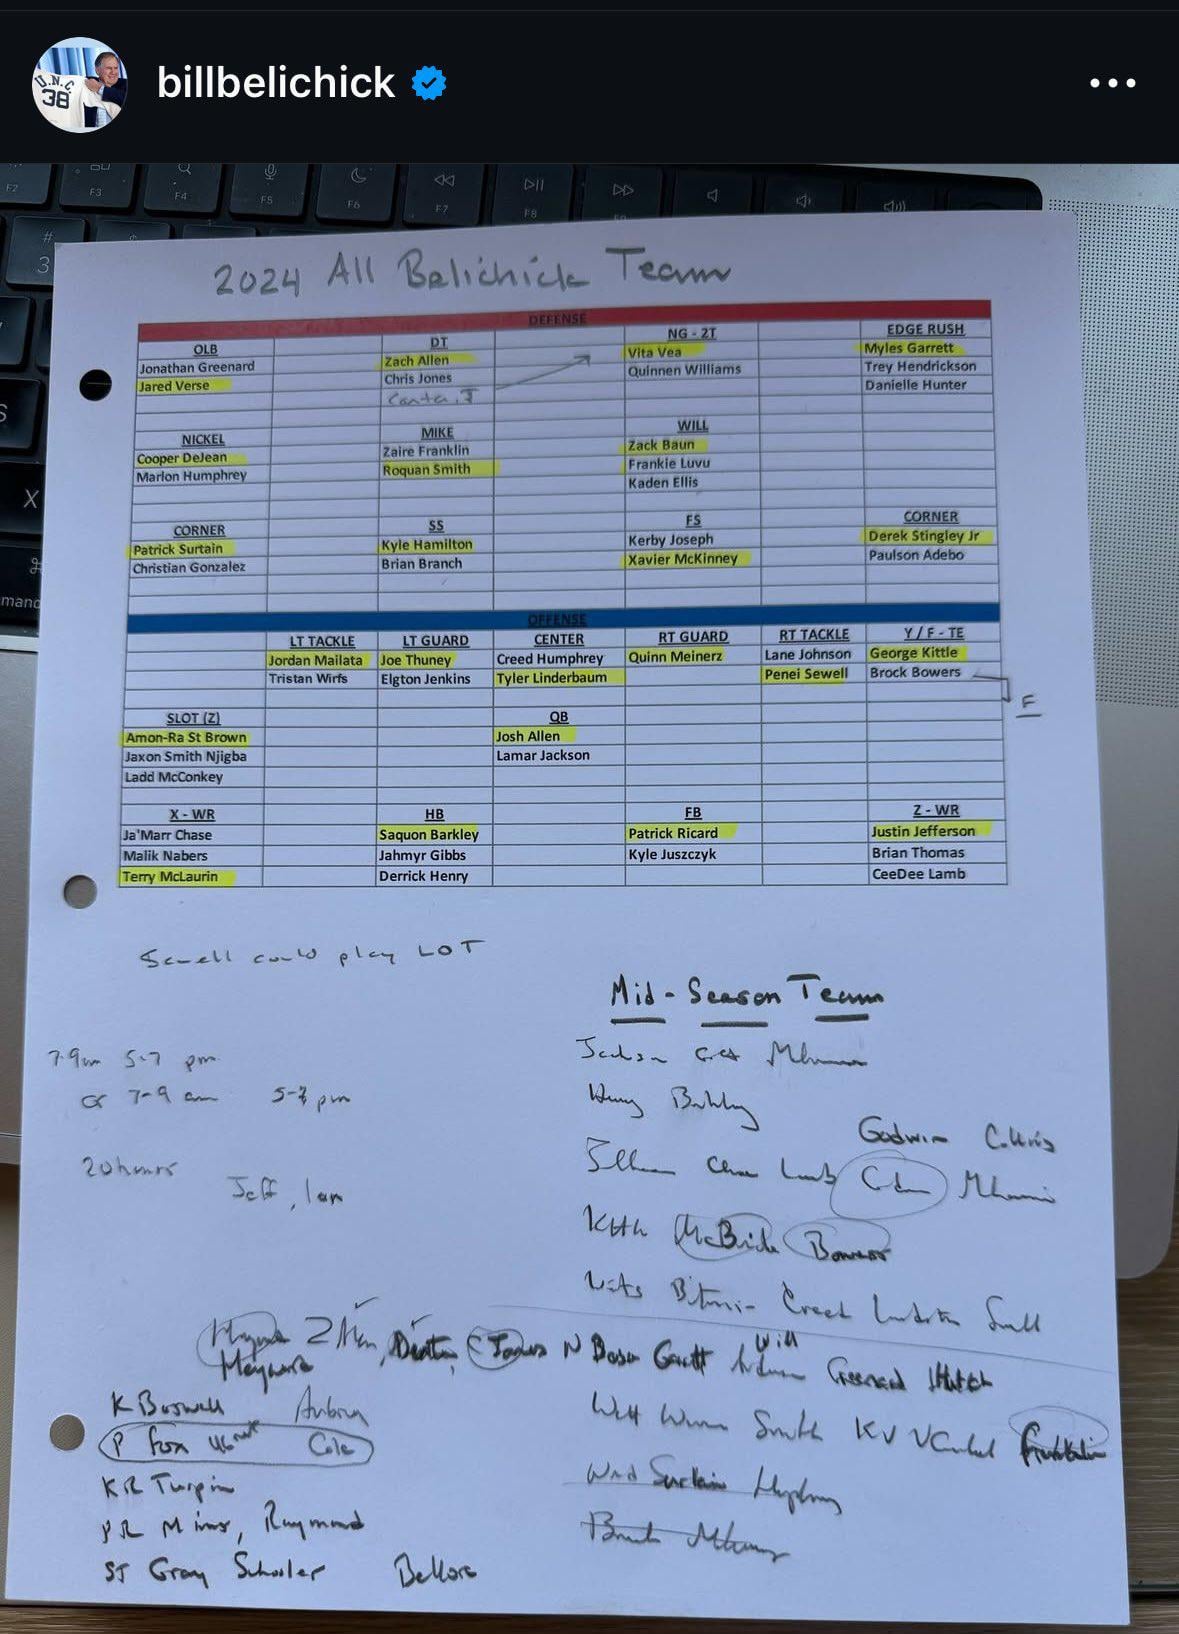 billbelichick
U.N.C.
38
F2 F3 F4 F5 F6 F7 F8 F9
#
3
X
S
mand
2024 All Belichick Team
DEFENSE
OLB DT NG - 2T EDGE RUSH
Jonathan Greenard Zach Allen Vita Vea Myles Garrett
Jared Verse Chris Jones Quinnen Williams Trey Hendrickson
Carter, J Danielle Hunter
NICKEL MIKE WILL
Cooper DeJean Zaire Franklin Zack Baun
Marlon Humphrey Roquan Smith Frankie Luvu
Kaden Ellis
CORNER SS FS CORNER
Patrick Surtain Kyle Hamilton Kerby Joseph Derek Stingley Jr
Christian Gonzalez Brian Branch Xavier McKinney Paulson Adebo
OFFENSE
LT TACKLE LT GUARD CENTER RT GUARD RT TACKLE Y / F - TE
Jordan Mailata Joe Thuney Creed Humphrey Quinn Meinerz Lane Johnson George Kittle
Tristan Wirfs Elgton Jenkins Tyler Linderbaum Penei Sewell Brock Bowers
F
SLOT (Z) QB
Amon-Ra St Brown Josh Allen
Jaxon Smith Njigba Lamar Jackson
Ladd McConkey
X - WR HB FB Z - WR
Ja'Marr Chase Saquon Barkley Patrick Ricard Justin Jefferson
Malik Nabers Jahmyr Gibbs Kyle Juszczyk Brian Thomas
Terry McLaurin Derrick Henry CeeDee Lamb
Sewell could play LOT
Mid - Season Team
7-9am 5-7 pm
or 7-9 am 5-7 pm
20 hours
Jeff, Ian
Jackson
Henry Barkley
Godwin Collins
Chase Lamb
Kittle McBride Bowers
Creed Sewell
Z Allen, C Jones N Bosa Garrett Will Greenard Hutch
Maynard
K Boswell Aubrey
P Fox Cole
KR Turpin
PR Mims, Raymond
ST Gray Schooler Bellore
Watt Warner Smith KV Franklin
Ward Surtain Humphrey
Branch